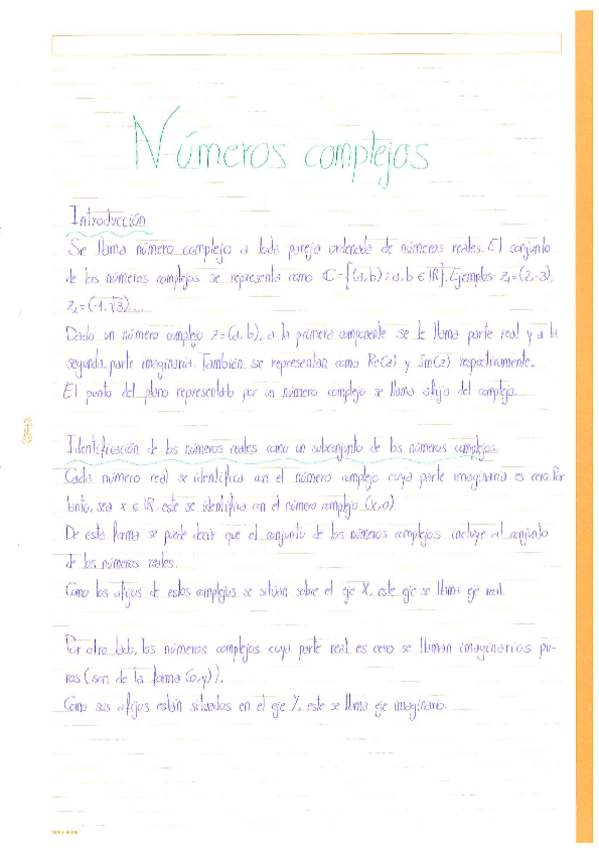 Números complejos
Introducción
Se llama número complejo a toda pareja ordenada de números reales. El conjunto
de los números complejos se representa como ℂ = {(a, b) : a, b ∈ ℝ}. Ejemplos: z₁=(2,-3),
z₂=(-1,√3)...
Dado un número complejo z=(a, b), a la primera componente se le llama parte real y a la
segunda, parte imaginaria. También se representan como Re(z) y Im(z) respectivamente.
El punto del plano representado por un número complejo se llama afijo del complejo.
Identificación de los números reales como un subconjunto de los números complejos.
Cada número real se identifica con el número complejo cuya parte imaginaria es cero. Por
tanto, sea x ∈ ℝ, este se identifica con el número complejo (x,0).
De esta forma se puede decir que el conjunto de los números complejos incluye al conjunto
de los números reales.
Como los afijos de estos complejos se sitúan sobre el eje X, este eje se llama eje real.
Por otro lado, los números complejos cuya parte real es cero se llaman imaginarios pu-
ros (son de la forma (0,y)).
Como sus afijos están situados en el eje Y, este se llama eje imaginario.